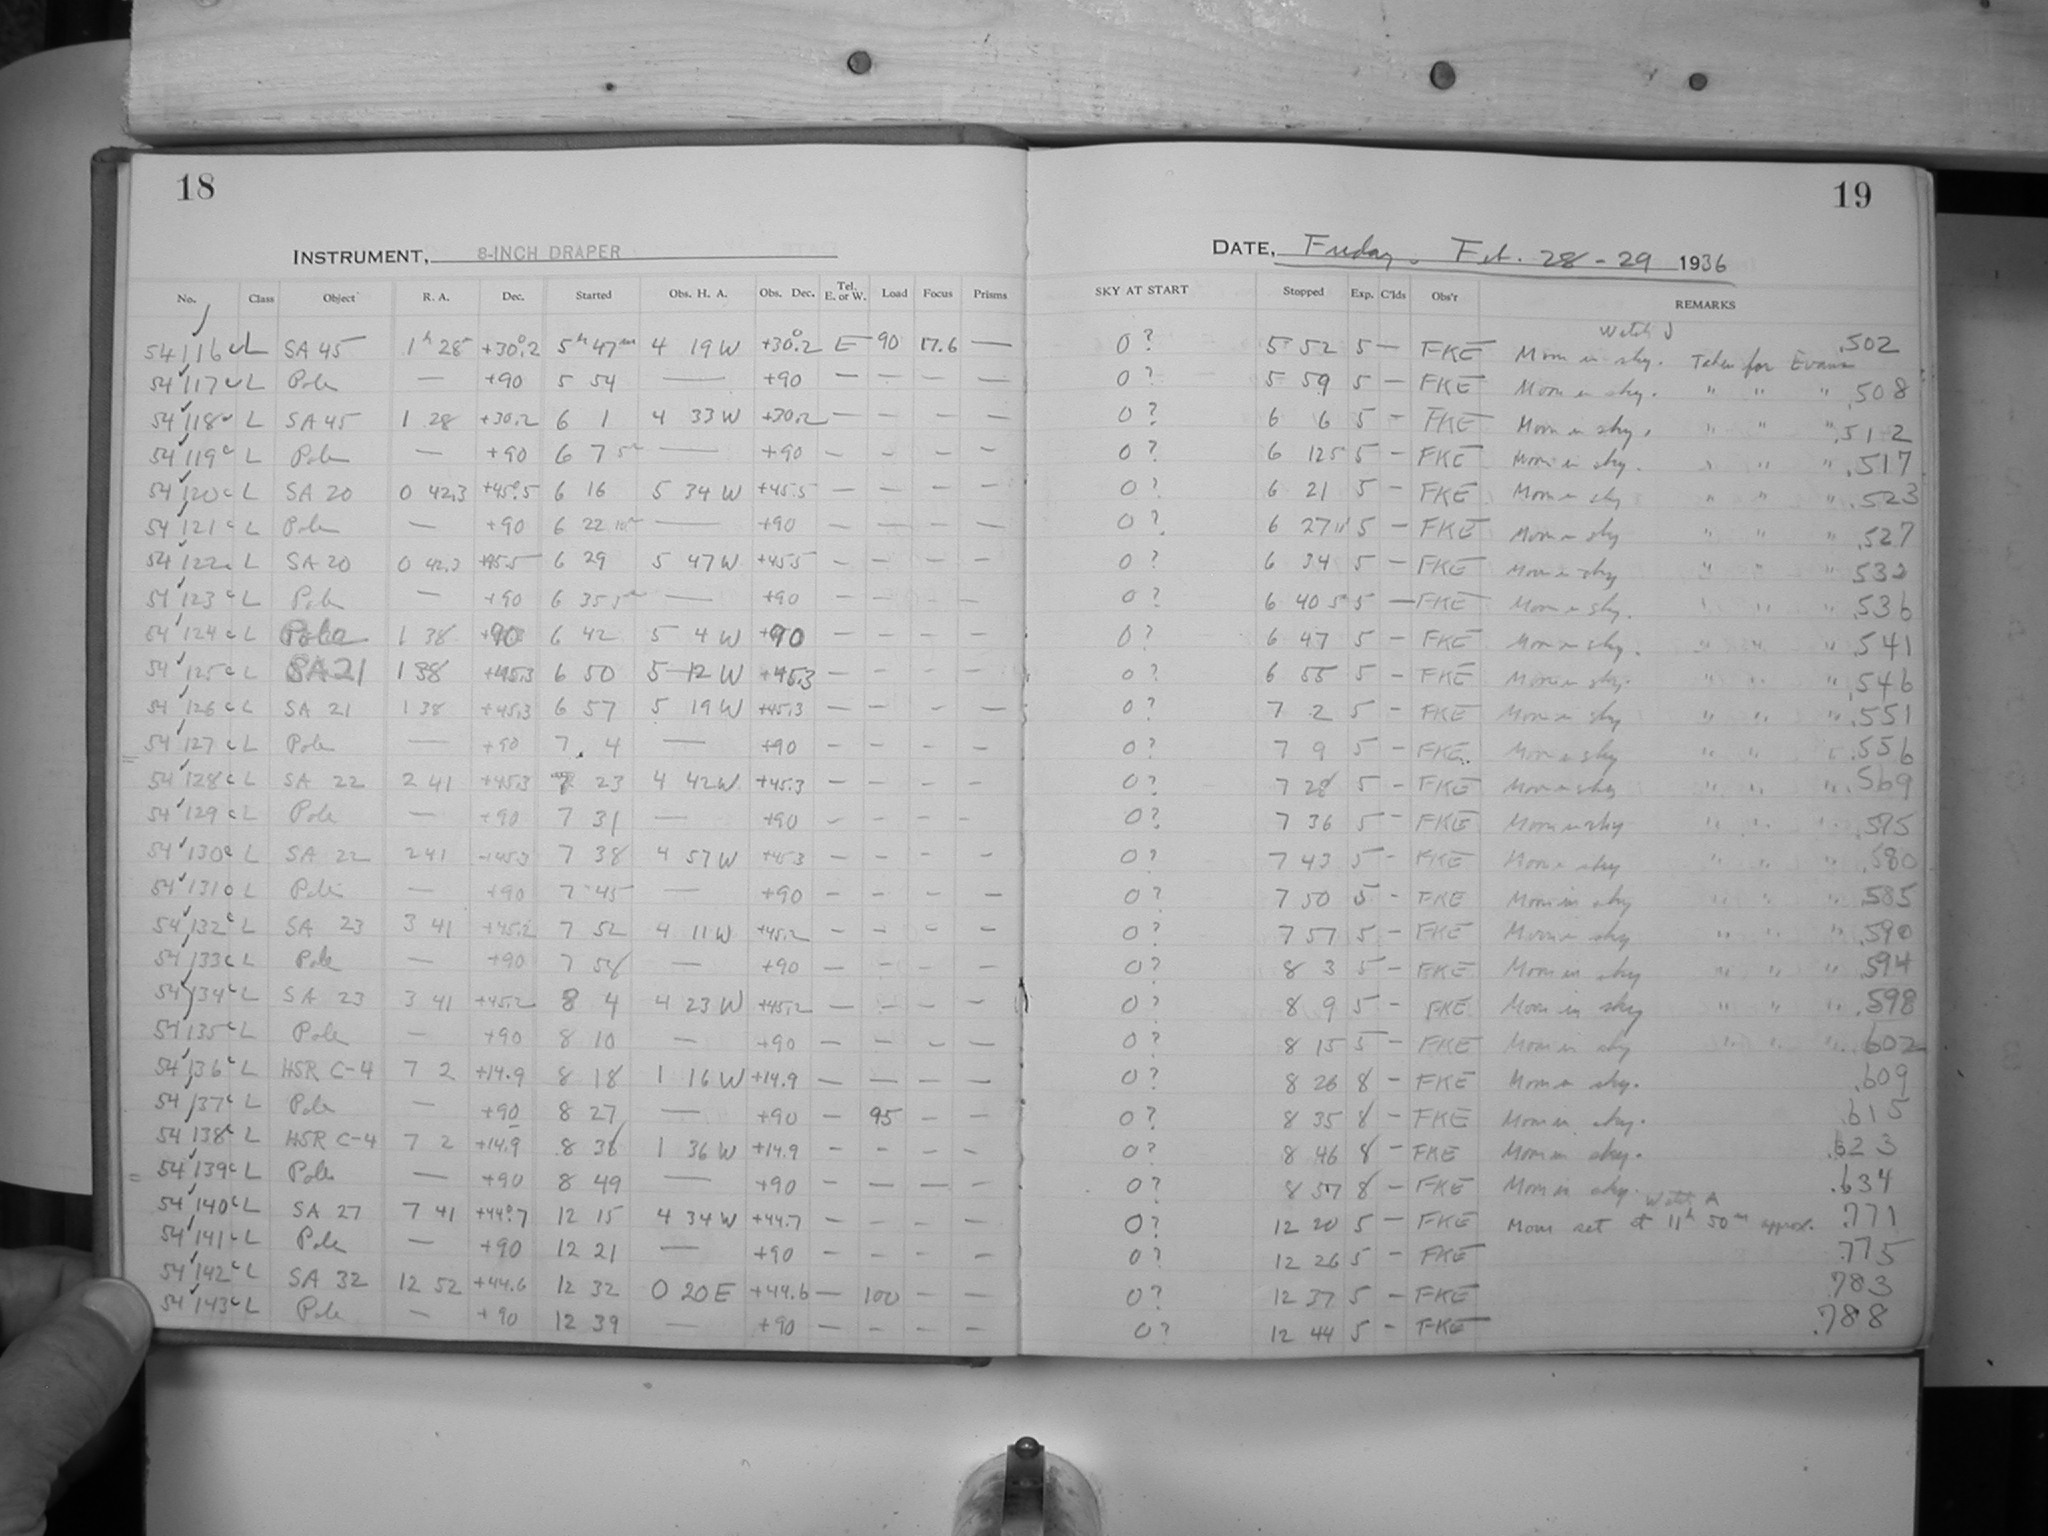 18
19
INSTRUMENT, 8-INCH DRAPER
DATE, Friday, Feb. 28-29 1936
No. Class Object R. A. Dec. Started Obs. H. A. Obs. Dec. Tel. E. or W. Load Focus Prisms SKY AT START Stopped Exp. C'lds Obs'r REMARKS
Watch J
54116 L SA 45 1h 28 +30°.2 5h 47m 4 19 W +30°.2 E 90 17.6 — 0? 5 52 5 — FKE Moon in sky. Taken for Evans .502
54117 L Pole — +90 5 54 — +90 — — — — 0? 5 59 5 — FKE Moon in sky. " " " .508
54118 L SA 45 1 28 +30.2 6 1 4 33 W +30.2 — — — — 0? 6 6 5 — FKE Moon in sky. " " " .512
54119 L Pole — +90 6 7 5 — +90 — — — — 0? 6 12 5 5 — FKE Moon in sky. " " " .517
54120 L SA 20 0 42.3 +45°.5 6 16 5 34 W +45.5 — — — — 0? 6 21 5 — FKE Moon in sky " " " .523
54121 L Pole — +90 6 22 — +90 — — — — 0? 6 27 5 — FKE Moon in sky " " " .527
54122 L SA 20 0 42.3 +45.5 6 29 5 47 W +45.5 — — — — 0? 6 34 5 — FKE Moon in sky " " " .532
54123 L Pole — +90 6 35 5 — +90 — — — — 0? 6 40 5 5 — FKE Moon in sky. " " " .536
54124 L Pole 1 38 +90 6 42 5 4 W +90 — — — — 0? 6 47 5 — FKE Moon in sky. " " " .541
54125 L SA 21 1 38 +45.3 6 50 5 12 W +45.3 — — — — 0? 6 55 5 — FKE Moon in sky. " " " .546
54126 L SA 21 1 38 +45.3 6 57 5 19 W +45.3 — — — — 0? 7 2 5 — FKE Moon in sky " " " .551
54127 L Pole — +90 7 4 — +90 — — — — 0? 7 9 5 — FKE Moon in sky " " " .556
54128 L SA 22 2 41 +45.3 7 23 4 42 W +45.3 — — — — 0? 7 28 5 — FKE Moon in sky " " " .569
54129 L Pole — +90 7 31 — +90 — — — — 0? 7 36 5 — FKE Moon in sky " " " .575
54130 L SA 22 2 41 +45.3 7 38 4 57 W +45.3 — — — — 0? 7 43 5 — FKE Moon in sky " " " .580
54131 L Pole — +90 7 45 — +90 — — — — 0? 7 50 5 — FKE Moon in sky " " " .585
54132 L SA 23 3 41 +45.2 7 52 4 11 W +45.2 — — — — 0? 7 57 5 — FKE Moon in sky " " " .590
54133 L Pole — +90 7 58 — +90 — — — — 0? 8 3 5 — FKE Moon in sky " " " .594
54134 L SA 23 3 41 +45.2 8 4 4 23 W +45.2 — — — — 0? 8 9 5 — FKE Moon in sky " " " .598
54135 L Pole — +90 8 10 — +90 — — — — 0? 8 15 5 — FKE Moon in sky " " " .602
54136 L HSR C-4 7 2 +14.9 8 18 1 16 W +14.9 — — — — 0? 8 26 8 — FKE Moon in sky. .609
54137 L Pole — +90 8 27 — +90 — 95 — — 0? 8 35 8 — FKE Moon in sky. .615
54138 L HSR C-4 7 2 +14.9 8 38 1 36 W +14.9 — — — — 0? 8 46 8 — FKE Moon in sky. .623
54139 L Pole — +90 8 49 — +90 — — — — 0? 8 57 8 — FKE Moon in sky. .634
Watch A
54140 L SA 27 7 41 +44°.7 12 15 4 34 W +44.7 — — — — 0? 12 20 5 — FKE Moon set at 11h 50m approx. .771
54141 L Pole — +90 12 21 — +90 — — — — 0? 12 26 5 — FKE .775
54142 L SA 32 12 52 +44.6 12 32 0 20 E +44.6 — 100 — — 0? 12 37 5 — FKE .783
54143 L Pole — +90 12 39 — +90 — — — — 0? 12 44 5 — FKE .788